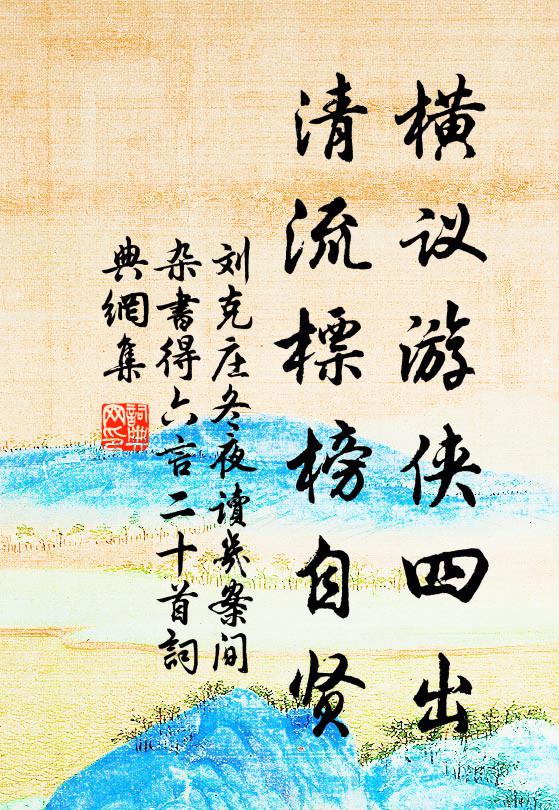 横议游侠四出
清流標榜自贤
刘克庄冬夜读几案间
杂書得六言二十首詞
典網集
詞典网印